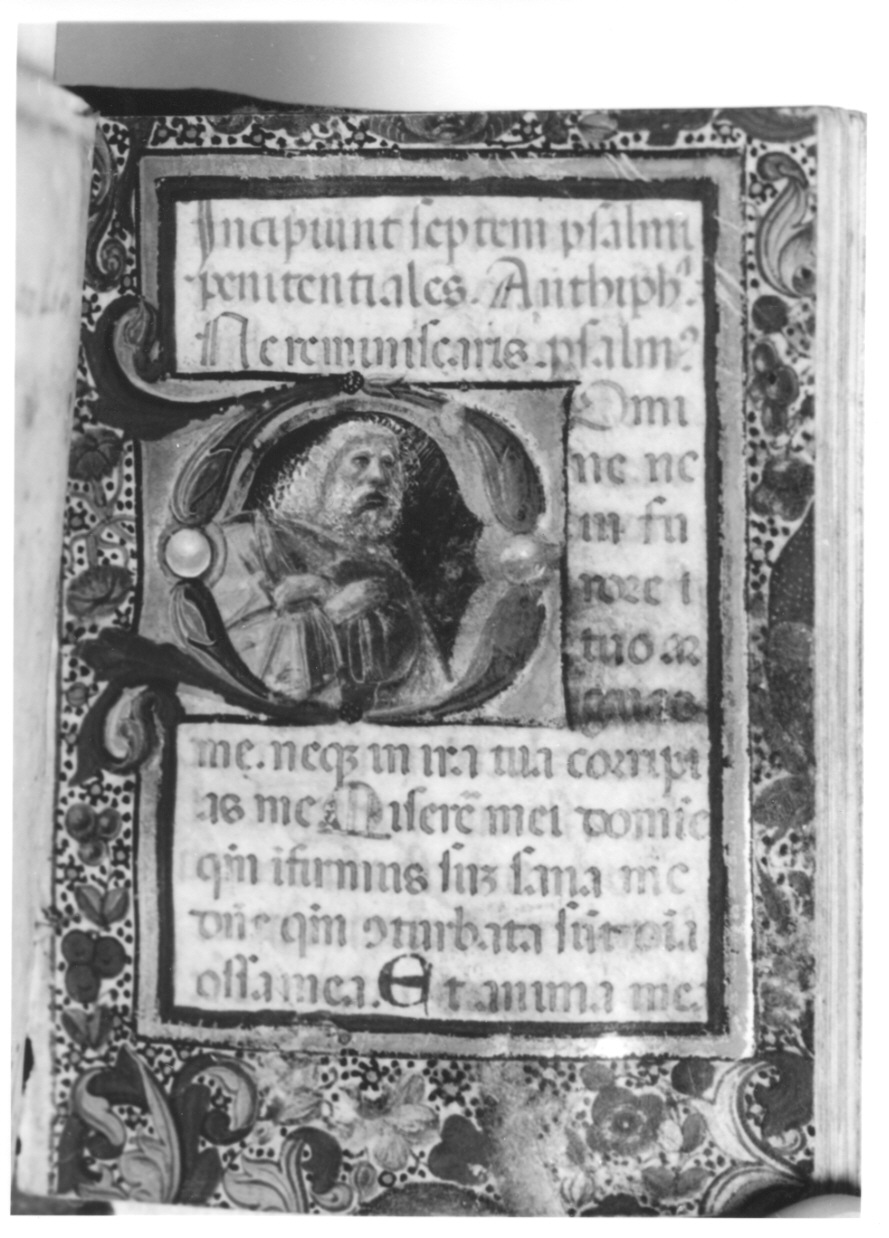 Incipiunt septem psalmi
penitentiales. Antiphͦ.
Ne reminiscaris. psalmꝰ
Domi
ne ne
in fu
rore t
tuo ar
guas
me. neqꝫ in ira tua corripi
as me Miserē mei domie
qm̄ ifirmus suꝫ sana me
dn̄e qm̄ ꝯturbata sūt oīa
ossa mea. Et anima me.